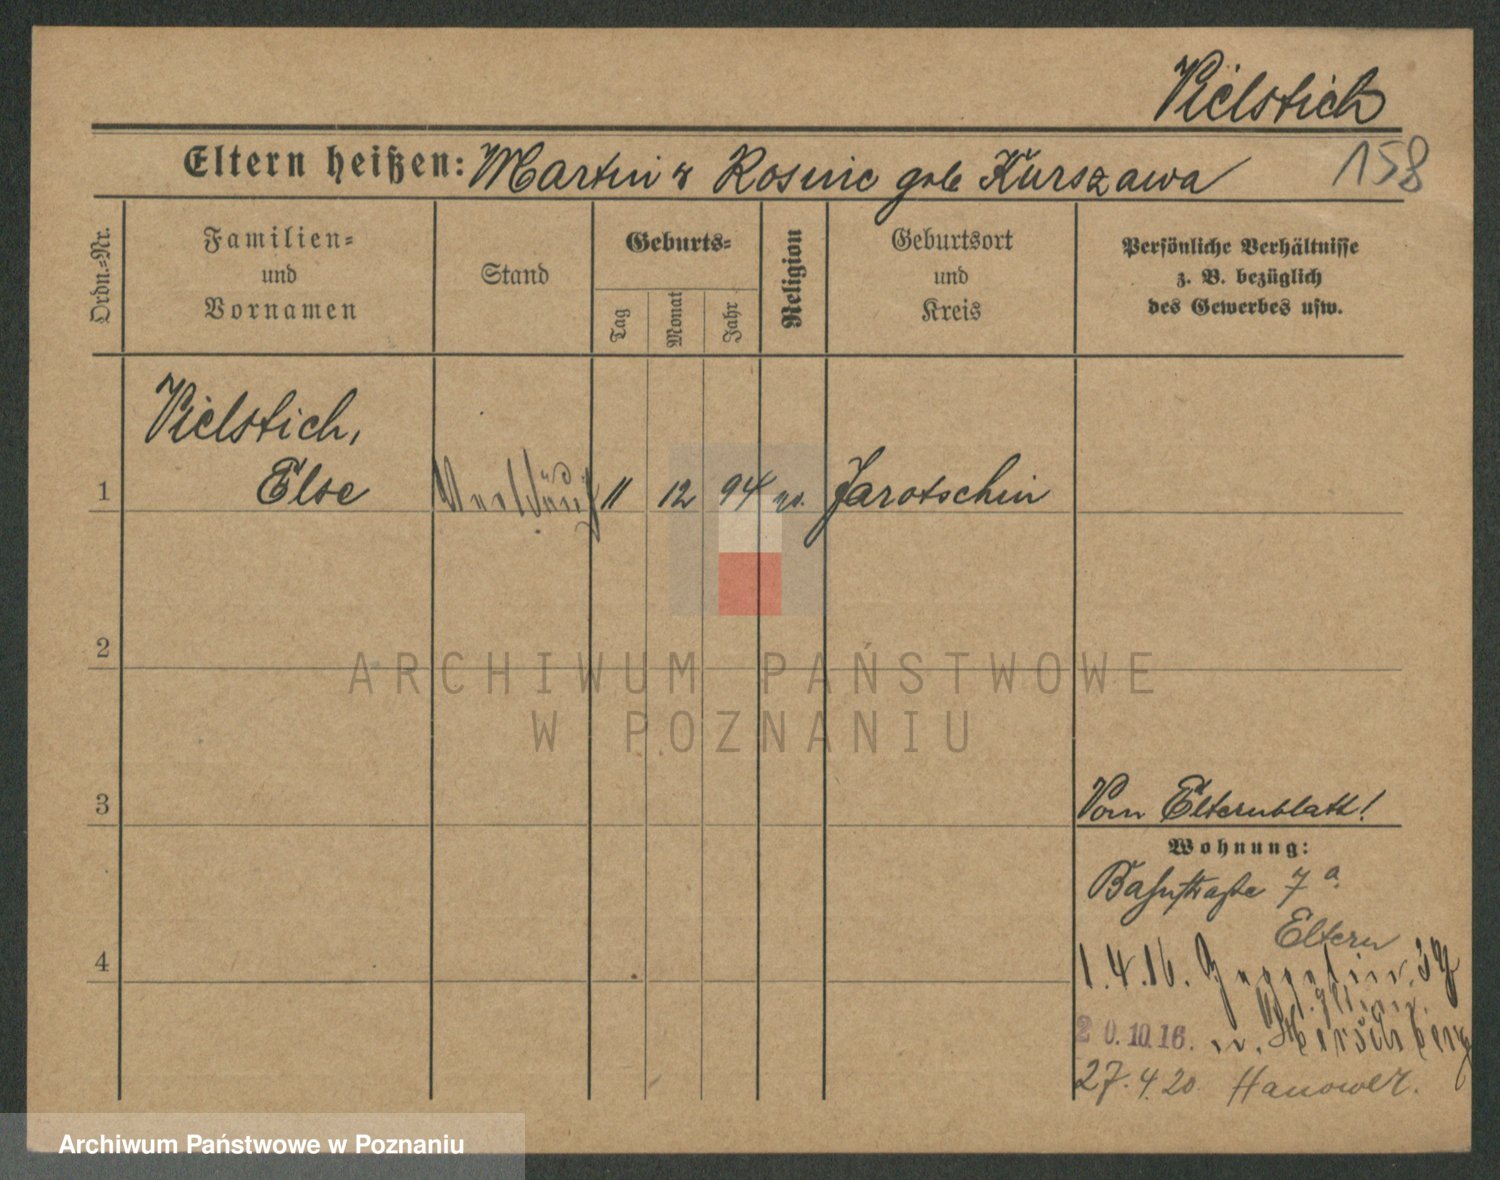 Vielstich
Eltern heißen: Martin & Rosine geb Kurszawa
158
Ordn.=Nr.
Familien=
und
Vornamen
Stand
Geburts=
Tag
Monat
Jahr
Religion
Geburtsort
und
Kreis
Persönliche Verhältnisse
z. B. bezüglich
des Gewerbes usw.
Vielstich,
1 Else 11 12 94 Jarotschin
2
ARCHIWUM PAŃSTWOWE
W POZNANIU
3
Vom Elternblatt!
Wohnung:
Bahnstraße 7a
Eltern
4
1.4.16.
20.10.16. n. Hirschberg
27.4.20 Hanower.
Archiwum Państwowe w Poznaniu